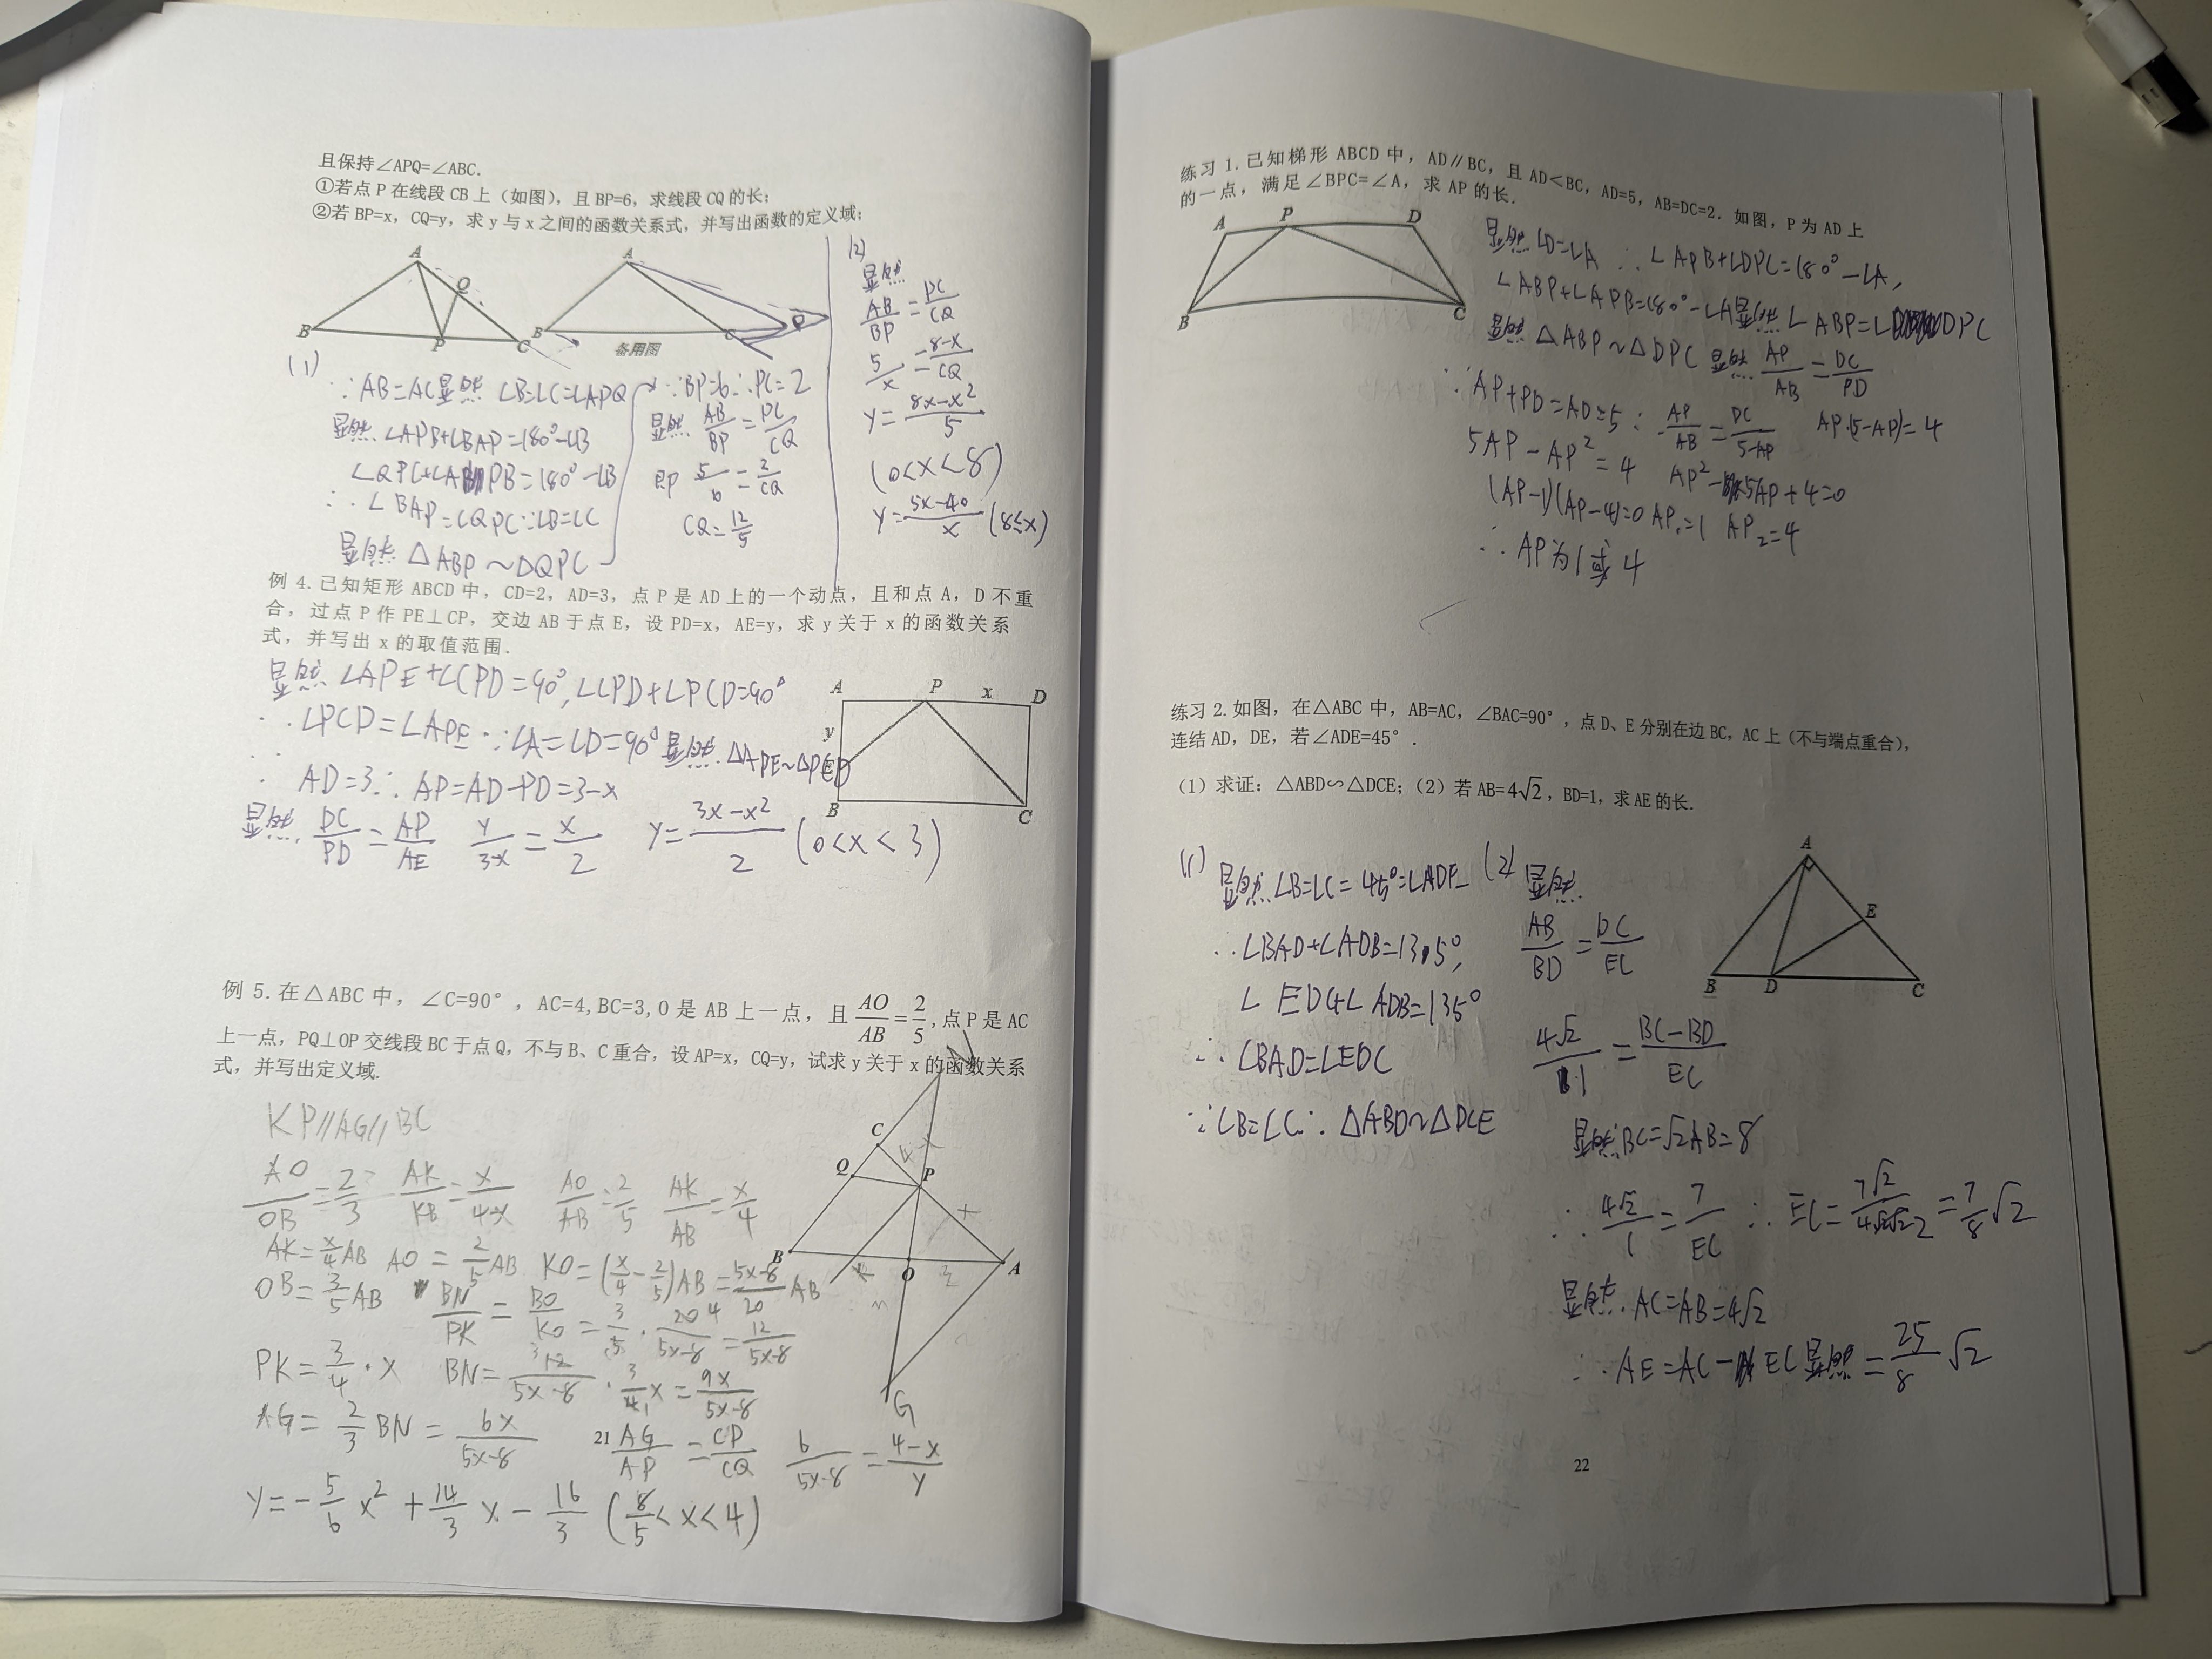 且保持∠APQ=∠ABC.
①若点 P 在线段 CB 上（如图），且 BP=6，求线段 CQ 的长；
②若 BP=x，CQ=y，求 y 与 x 之间的函数关系式，并写出函数的定义域；
A
Q
B
P
C
A
B
C
Q
备用图
(1)
∵AB=AC显然 ∠B=∠C=∠APQ
显然 ∠APB+∠BAP=180°-∠B
∠QPC+∠APB=180°-∠B
∴∠BAP=∠QPC∵∠B=∠C
显然 △ABP~△QPC
∵BP=6∴PC=2
显然 AB/BP=PC/CQ
即 5/6=2/CQ
CQ=12/5
(2)
显然
AB/BP=PC/CQ
5/x=8-x/CQ
y=8x-x²/5
(0<x<8)
y=5x-40/x (8≤x)
例 4.已知矩形 ABCD 中，CD=2，AD=3，点 P 是 AD 上的一个动点，且和点 A，D 不重
合，过点 P 作 PE⊥CP，交边 AB 于点 E，设 PD=x，AE=y，求 y 关于 x 的函数关系
式，并写出 x 的取值范围.
显然 ∠APE+∠CPD=90°,∠CPD+∠PCD=90°
∴∠PCD=∠APE∵∠A=∠D=90°显然 △APE~△PCD
∵AD=3∴AP=AD-PD=3-x
显然 DC/PD=AP/AE y/3-x=x/2 y=3x-x²/2 (0<x<3)
A
P
x
D
y
B
C
例 5.在△ABC 中，∠C=90°，AC=4,BC=3,O 是 AB 上一点，且AO/AB=2/5,点 P 是 AC
上一点，PQ⊥OP 交线段 BC 于点 Q，不与 B、C 重合，设 AP=x，CQ=y，试求 y 关于 x 的函数关系
式，并写出定义域.
N
C
Q
P
B
K
O
A
G
KP//AG//BC
AO/OB=2/3 AK/KB=x/4-x AO/AB=2/5 AK/AB=x/4
AK=x/4AB AO=2/5AB KO=(x/4-2/5)AB=5x-8/20AB
OB=3/5AB BN/PK=BO/KO=3/5·20/5x-8=12/5x-8
PK=3/4·x BN=12/5x-8·3/4x=9x/5x-8
AG=2/3BN=6x/5x-8 AG/AP=CP/CQ 6/5x-8=4-x/y
21
y=-5/6x²+14/3x-16/3 (8/5<x<4)
练习 1.已知梯形 ABCD 中，AD∥BC，且 AD＜BC，AD=5，AB=DC=2．如图，P 为 AD 上
的一点，满足∠BPC=∠A，求 AP 的长．
A
P
D
B
C
显然 ∠D=∠A ∴∠APB+∠DPC=180°-∠A,
∠ABP+∠APB=180°-∠A显然 ∠ABP=∠DPC
显然 △ABP~△DPC 显然 AP/AB=DC/PD
∵AP+PD=AD=5∴AP/AB=DC/5-AP AP·(5-AP)=4
5AP-AP²=4 AP²-5AP+4=0
(AP-1)(AP-4)=0 AP₁=1 AP₂=4
∴AP为1或4
练习 2.如图，在△ABC 中，AB=AC，∠BAC=90°，点 D、E 分别在边 BC，AC 上（不与端点重合），
连结 AD，DE，若∠ADE=45°．
（1）求证：△ABD∽△DCE；（2）若 AB=4√2，BD=1，求 AE 的长．
A
E
B
D
C
(1) 显然 ∠B=∠C=45°=∠ADE
∴∠BAD+∠ADB=135°,
∠EDC+∠ADB=135°
∴∠BAD=∠EDC
∵∠B=∠C∴△ABD~△DCE
(2) 显然
AB/BD=DC/EC
4√2/1=BC-BD/EC
显然BC=√2AB=8
∴4√2/1=7/EC ∴EC=7√2/4√2·√2=7/8√2
显然 AC=AB=4√2
∴AE=AC-EC显然=25/8√2
22